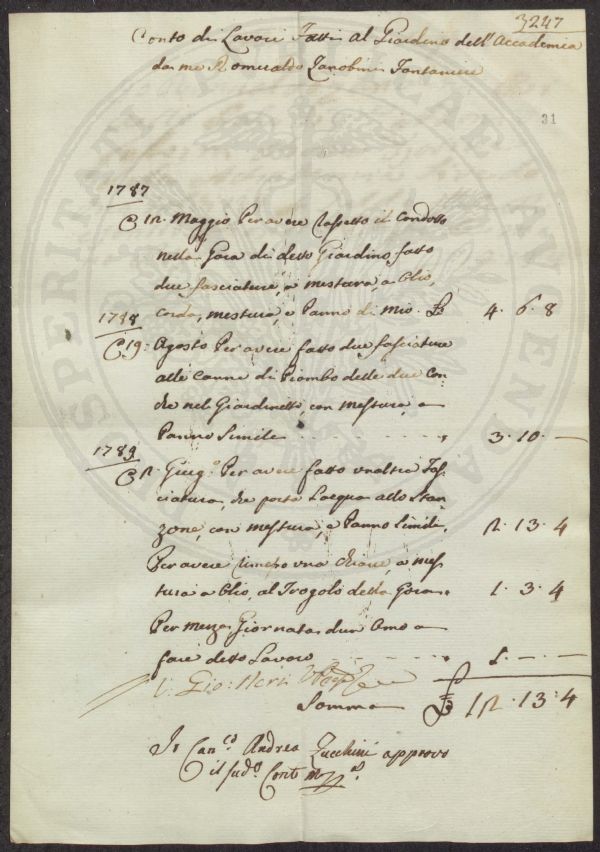 3247
Conto di Lavori Fatti al Giardino dell'Accademia
da me Romualdo Zanobini Fontaniere
31
1787
A 12. Maggio Per avere rassetto il Condotto
nella Gora di detto Giardino, fatto
due fasciature, a mestura, a Olio,
corda, mestura, e Panno di mio. £ 4. 6. 8
1788
A 19: Agosto Per avere fatto due fasciature
alle Canne di Piombo delle due Con-
che nel Giardinetto, con Mestura, e
Panno Simile " 3. 10. —
1789
A 12. Giug.o Per avere fatto un altra Fas-
ciatura, che porta Lacqua allo Stan-
zone, con Mestura, e Panno Simile, 2. 13. 4
Per avere una chiave, a mes-
tura a Olio, al Trogolo della Gora 1. 3. 4
Per mezza Giornata d'un Omo a
fare detto Lavoro " 1. — —
Gio: Neri
Somma £ 12. 13. 4
Io Can.co Andrea Zucchini approvo
il sud.o Conto
PROSPERITATI PUBLICAE AUGENDAE